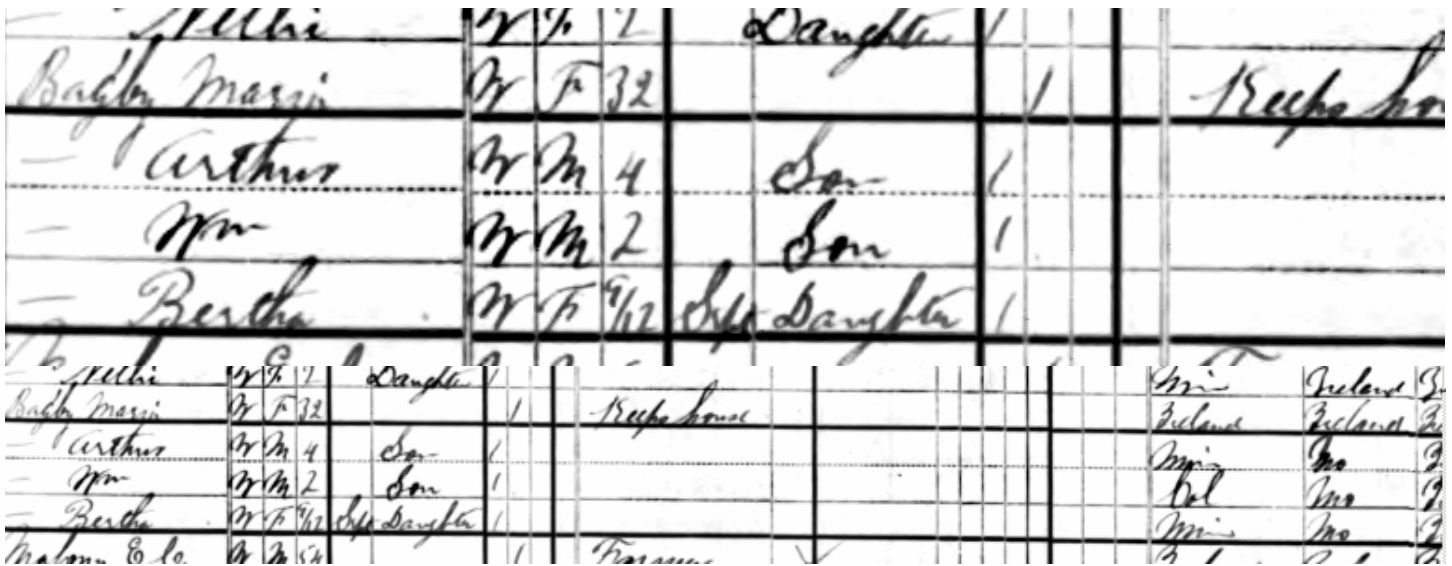 Nellie W F 2 Daughter 1
Bagby Maggie W F 32 1 Keeps hou
— Arthur W M 4 Son 1
— Wm W M 2 Son 1
— Bertha W F 9/12 Sept Daughter 1
Nellie W F 2 Daughter 1 Min Ireland
Bagby Maggie W F 32 1 Keeps house Ireland Ireland
— Arthur W M 4 Son 1 Min Mo
— Wm W M 2 Son 1 Col Mo
— Bertha W F 9/12 Sept Daughter 1 Min Mo
W M 54 1 Farmer